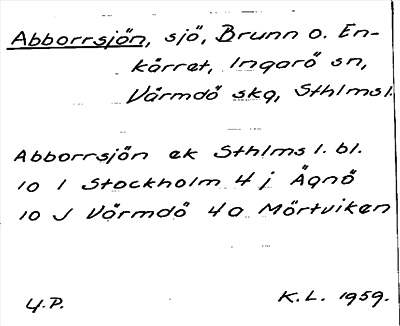 Abborrsjön, sjö, Brunn o. En-
kärret, Ingarö sn,
Värmdö skg, Sthlms l.
Abborrsjön ek Sthlms l. bl.
10 I Stockholm 4 j Ägnö
10 J Värmdö 4 a Mörtviken
U.P. K.L. 1959.